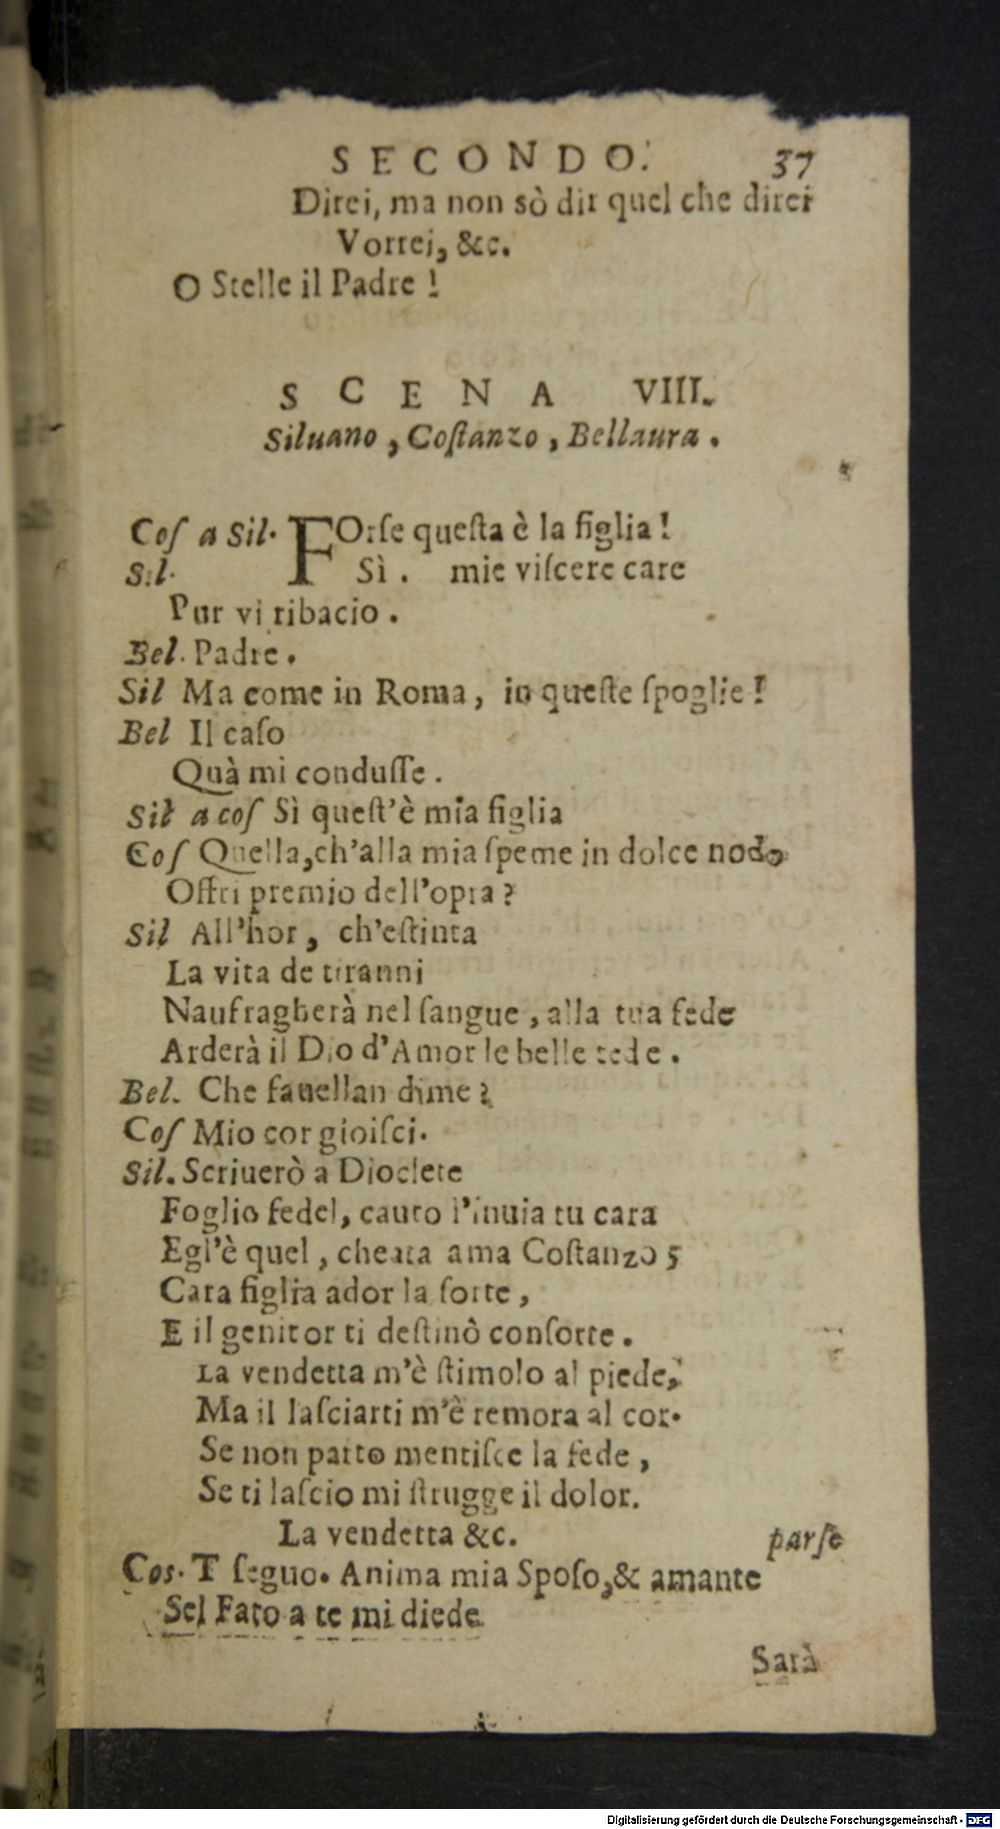 SECONDO. 37
Direi, ma non sò dir quel che direi
Vorrei, &c.
O Stelle il Padre !
SCENA VIII.
Siluano , Coſtanzo , Bellaura .
Coſ a Sil. FOrſe queſta è la figlia !
Sil. Sì . mie viſcere care
Pur vi ribacio .
Bel. Padre .
Sil Ma come in Roma, in queſte ſpoglie !
Bel Il caſo
Quà mi conduſſe .
Sil a coſ Sì queſt'è mia figlia
Coſ Quella, ch'alla mia ſpeme in dolce nodo
Offri premio dell'opra ?
Sil All'hor, ch'eſtinta
La vita de tiranni
Naufragherà nel ſangue , alla tua fede
Arderà il Dio d'Amor le belle tede .
Bel. Che fauellan dime ?
Coſ Mio cor gioiſci.
Sil. Scriuerò a Dioclete
Foglio fedel, cauto l'inuia tu cara
Egl'è quel , che ama Coſtanzo ;
Cara figlia ador la ſorte ,
E il genitor ti deſtinò conſorte .
La vendetta m'è ſtimolo al piede,
Ma il laſciarti m'è remora al cor.
Se non parto mentiſce la fede ,
Se ti laſcio mi ſtrugge il dolor.
La vendetta &c. parſe
Cos. T ſeguo. Anima mia Spoſo, & amante
Sel Fato a te mi diede
Sarà
Digitalisierung gefördert durch die Deutsche Forschungsgemeinschaft - DFG